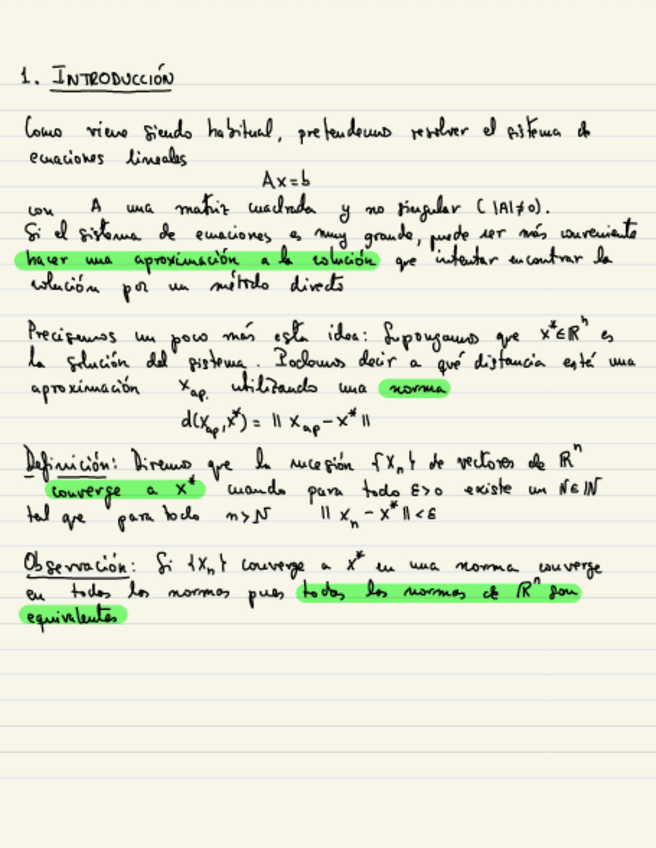 1. INTRODUCCIÓN
Como viene siendo habitual, pretendemos resolver el sistema de
ecuaciones lineales
Ax=b
con A una matriz cuadrada y no singular (|A|≠0).
Si el sistema de ecuaciones es muy grande, puede ser más conveniente
hacer una aproximación a la solución que intentar encontrar la
solución por un método directo
Precisemos un poco más esta idea: Supongamos que x*∈ℝⁿ es
la solución del sistema. Podemos decir a qué distancia está una
aproximación x_ap. utilizando una norma
d(x_ap, x*) = || x_ap - x* ||
Definición: Diremos que la sucesión {x_n} de vectores de ℝⁿ
converge a x* cuando para todo ε>0 existe un N∈ℕ
tal que para todo n>N || x_n - x* || < ε
Observación: Si {x_n} converge a x* en una norma converge
en todas las normas pues todas las normas de ℝⁿ son
equivalentes